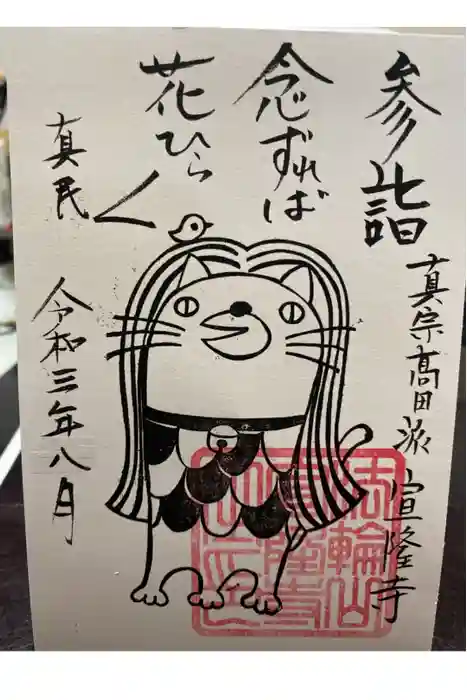 参詣
真宗高田派 宣隆寺
念ずれば
花ひらく
真民
令和三年八月
法輪山
宣隆寺